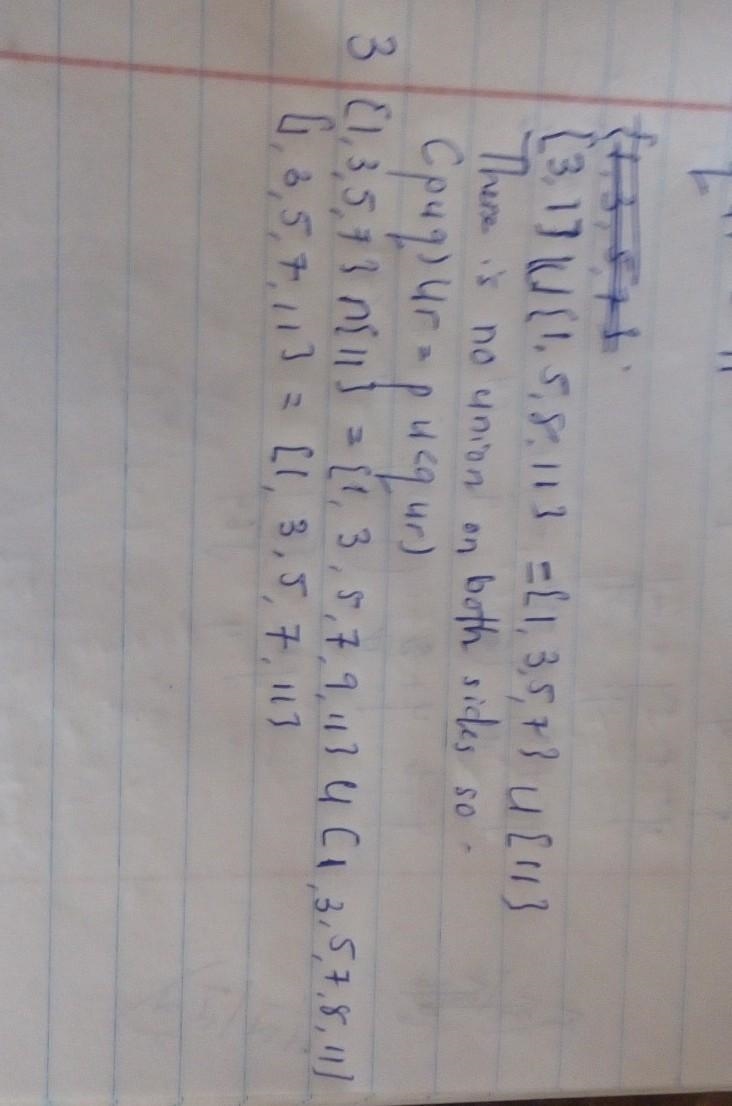 {3, 1} U {1, 5, 8, 11} = {1, 3, 5, 7} U {11}
There is no union on both sides so.
(p u q) u r = p u (q u r)
3 {1, 3, 5, 7} n {11} = {1, 3, 5, 7, 9, 11} U (1, 3, 5, 7, 8, 11}
{1, 3, 5, 7, 11} = {1, 3, 5, 7, 11}